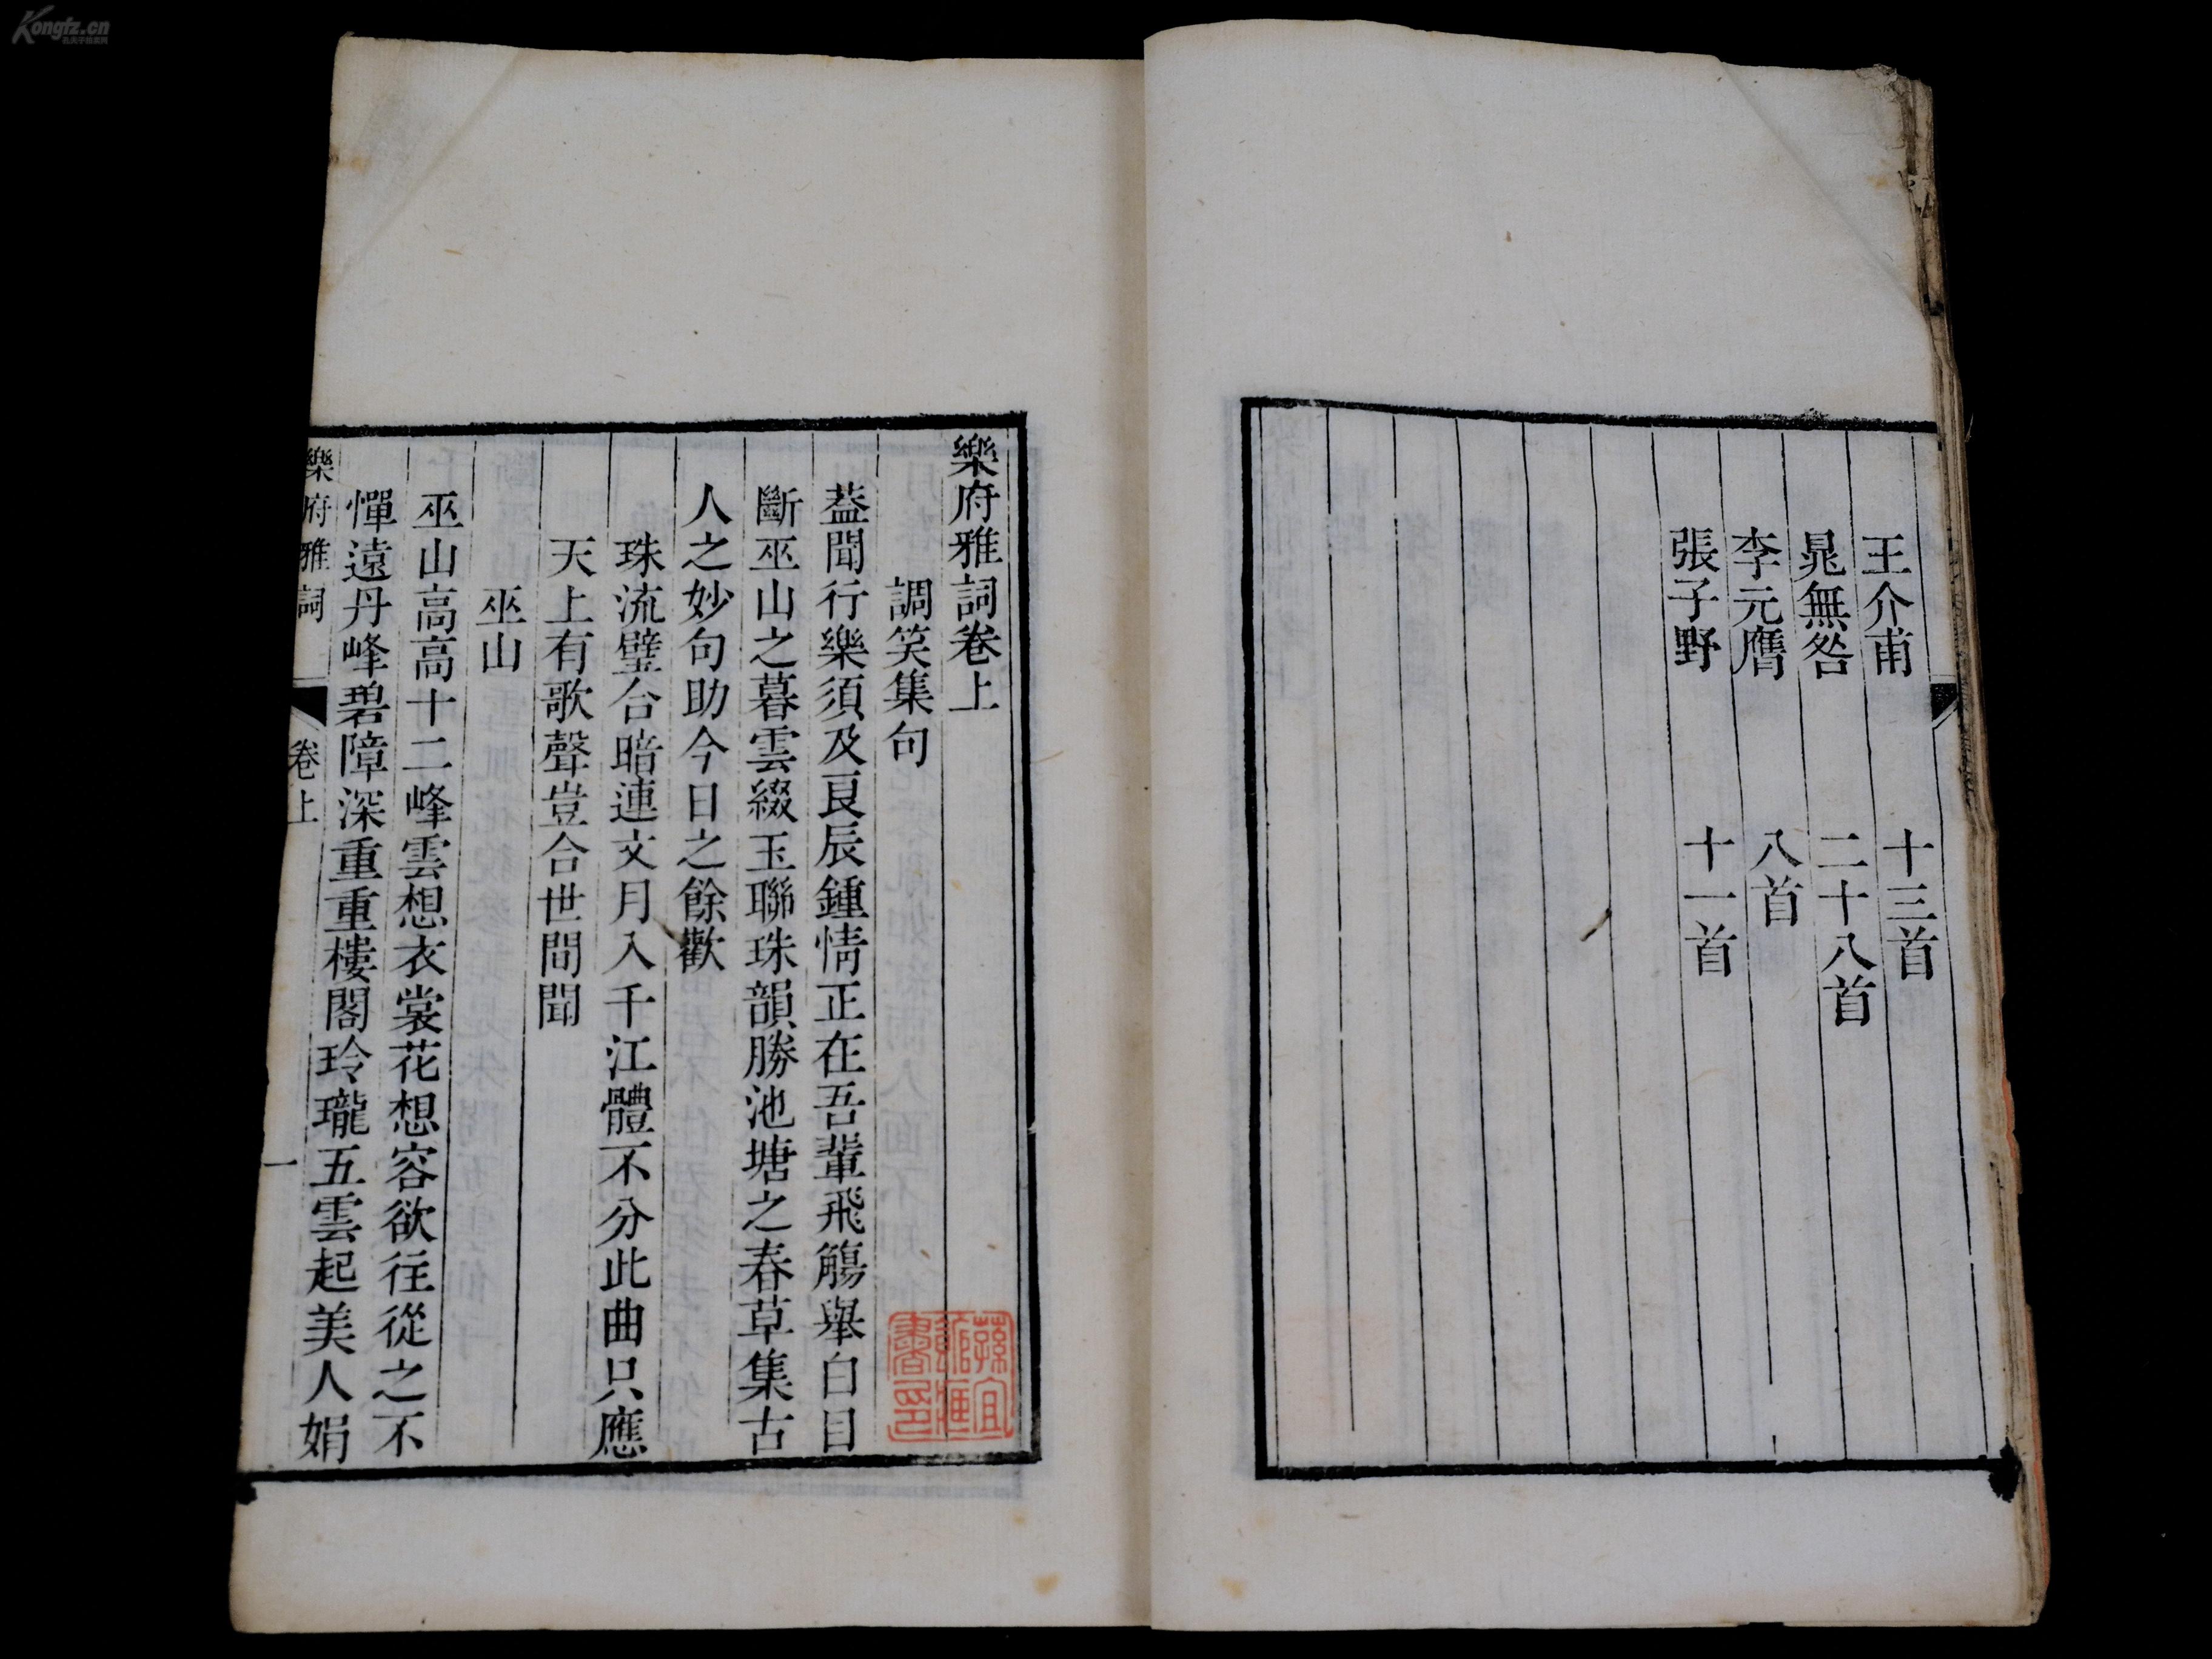 王介甫　十三首
晁無咎　二十八首
李元膺　八首
張子野　十一首
樂府雅詞卷上
調笑集句
葢聞行樂須及良辰鍾情正在吾輩飛觴舉白目
斷巫山之暮雲綴玉聯珠韻勝池塘之春草集古
人之妙句助今日之餘歡
珠流璧合暗連文月入千江體不分此曲只應
天上有歌聲豈合世間聞
巫山
巫山高高十二峰雲想衣裳花想容欲往從之不
憚遠丹峰碧障深重重樓閣玲瓏五雲起美人娟
樂府雅詞　卷上　一
Kongfz.cn